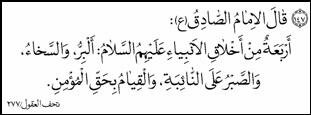 ﴿١٤٧﴾ قَالَ الْإِمَامُ الصَّادِقُ (ع):
أَرْبَعَةٌ مِنْ أَخْلَاقِ الْأَنْبِيَاءِ عَلَيْهِمُ السَّلَامُ: أَلْبِرُّ، وَالسَّخَاءُ،
وَالصَّبْرُ عَلَى النَّائِبَةِ. وَالْقِيَامُ بِحَقِّ الْمُؤْمِنِ.
تحف العقول/٢٧٧